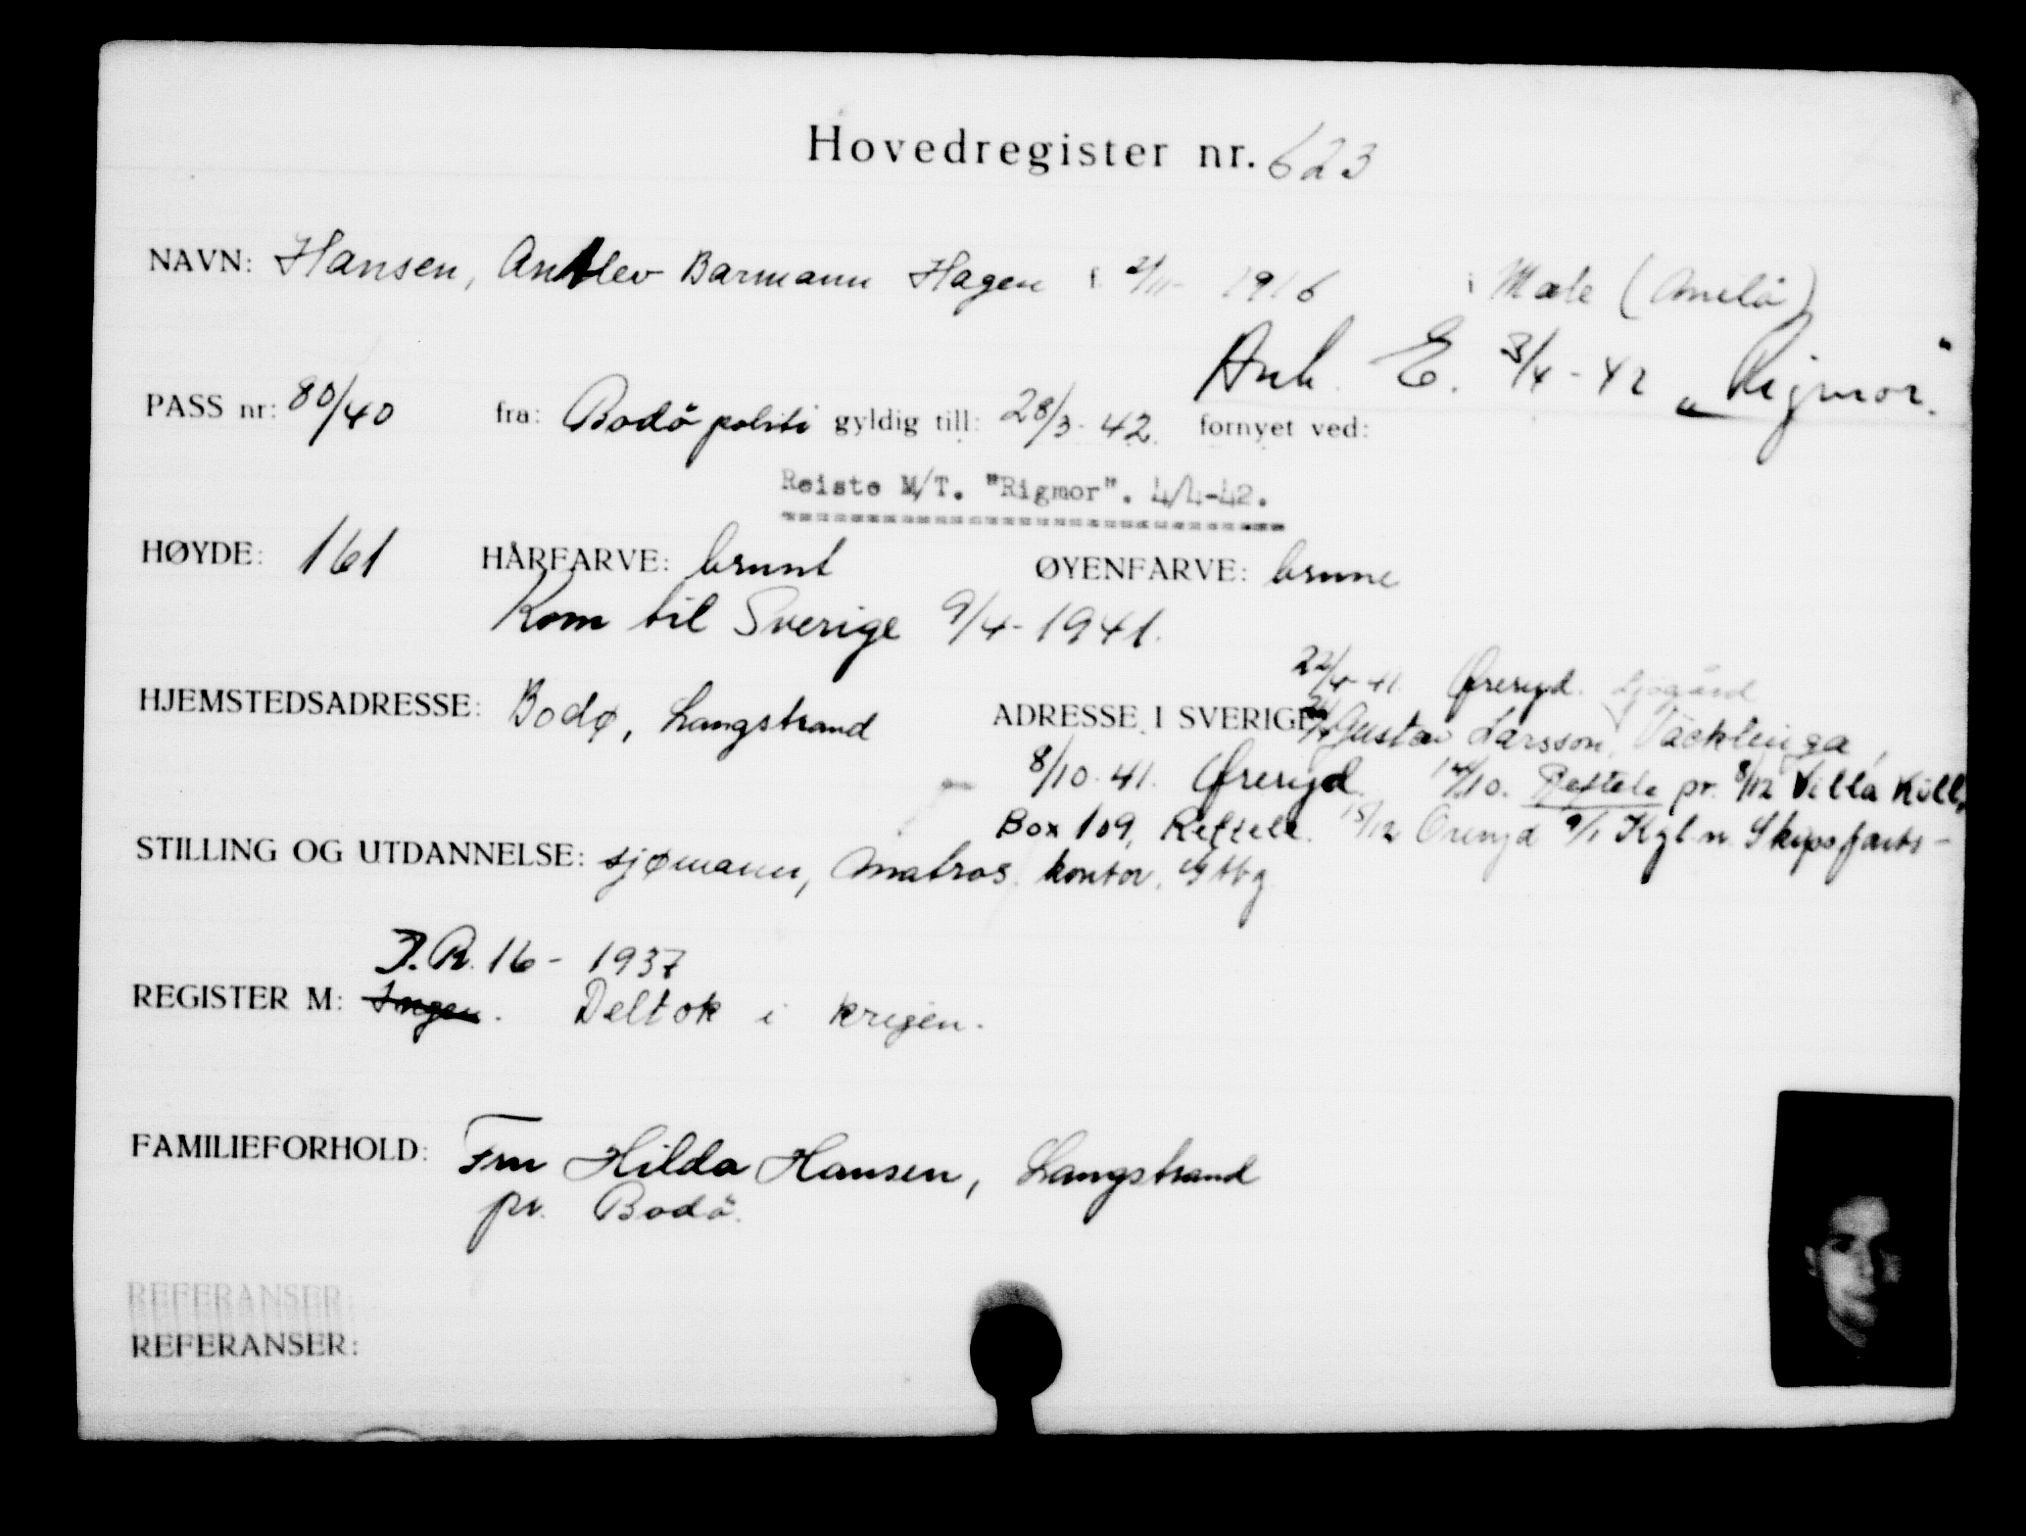 Hovedregister nr. 623
NAVN: Hansen, Antlev Barmann Hagen f. 2/11- 1916 i Mæle
Ank. E. 3/4-42 „Rigmor."
PASS nr: 80/40 fra: Bodö politi gyldig till: 28/3-42. fornyet ved:
Reiste M/T. "Rigmor". 4/4-42.
HØYDE: 161 HÅRFARVE: brunt ØYENFARVE: brune
Kom til Sverige 9/4-1941.
22/4-41. Øreryd. Sjögård
HJEMSTEDSADRESSE: Bodø, Langstrand ADRESSE I SVERIGE: Gustav Larsson, Väcklinga,
8/10-41. Øreryd. 14/10. Reftele pr. 8/12 Villa Kull,
Box 109, Reftele. 15/12 Öreryd 9/1 Kgl. n. Skipsfarts-
STILLING OG UTDANNELSE: sjømann, Matros. kontor, Gtbg
I.R. 16- 1937
REGISTER M: Ingen. Deltok i krigen.
FAMILIEFORHOLD: Fru Hilda Hansen, Langstrand
pr. Bodö.
REFERANSER
REFERANSER: